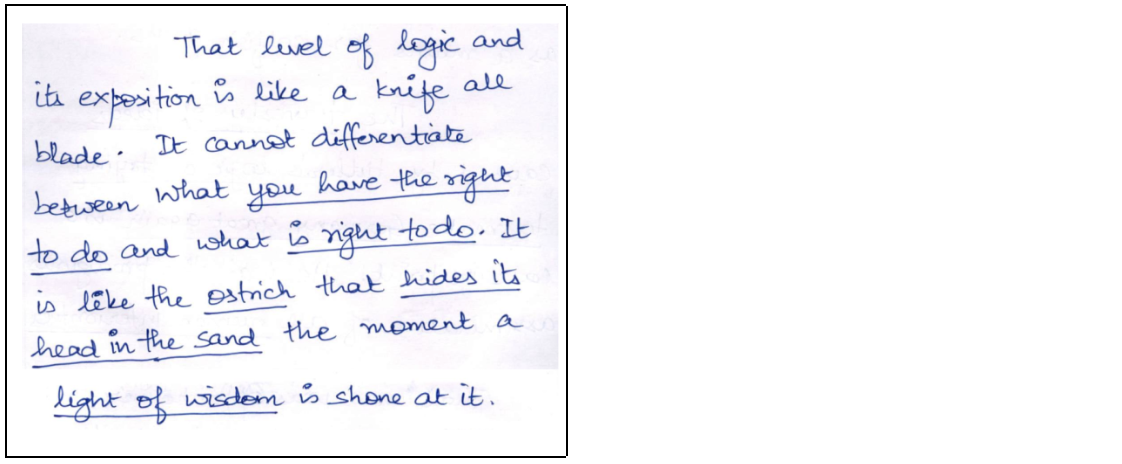 That level of logic and
its exposition is like a knife all
blade. It cannot differentiate
between what you have the right
to do and what is right to do. It
is like the ostrich that hides its
head in the sand the moment a
light of wisdom is shone at it.